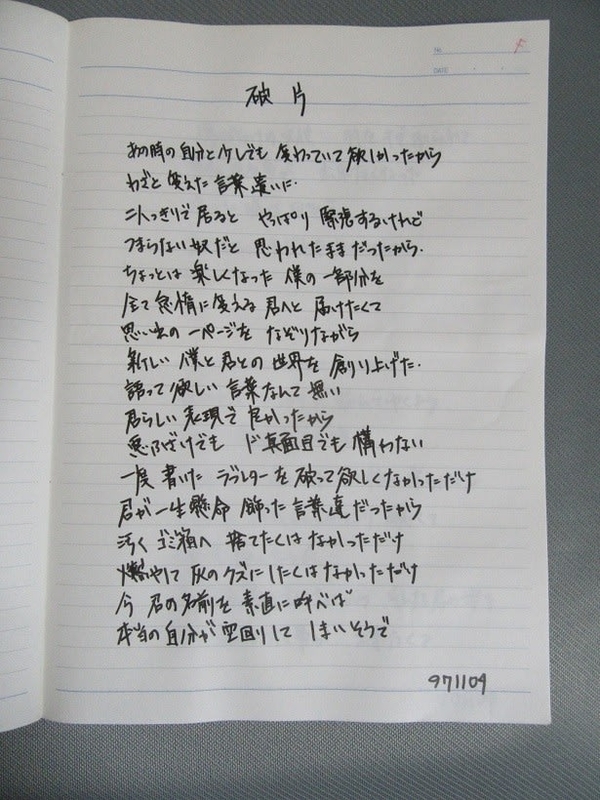 No.
DATE
破片
あの時の自分と少しでも変わっていて欲しかったから
わざと変えた言葉遣いに
二人っきりで居ると やっぱり 緊張するけれど
つまらない奴だと 思われたままだったから
ちょっとは 楽しくなった 僕の 一部分を
全て 怠惰に変える 君へと 届けたくて
思い出の 一ページを なぞりながら
新しい 僕と君との 世界を 創り上げた
語って欲しい 言葉なんて 無い
君らしい 表現で 良かったから
悪ふざけでも ド真面目でも 構わない
一度 書いた ラブレターを 破って欲しくなかっただけ
君が 一生懸命 飾った 言葉達だったから
汚く ゴミ箱へ 捨てたくは なかっただけ
燃やして 灰のクズにしたくは なかっただけ
今 君の名前を 素直に呼べば
本当の自分が 空回りして しまいそうで
971104